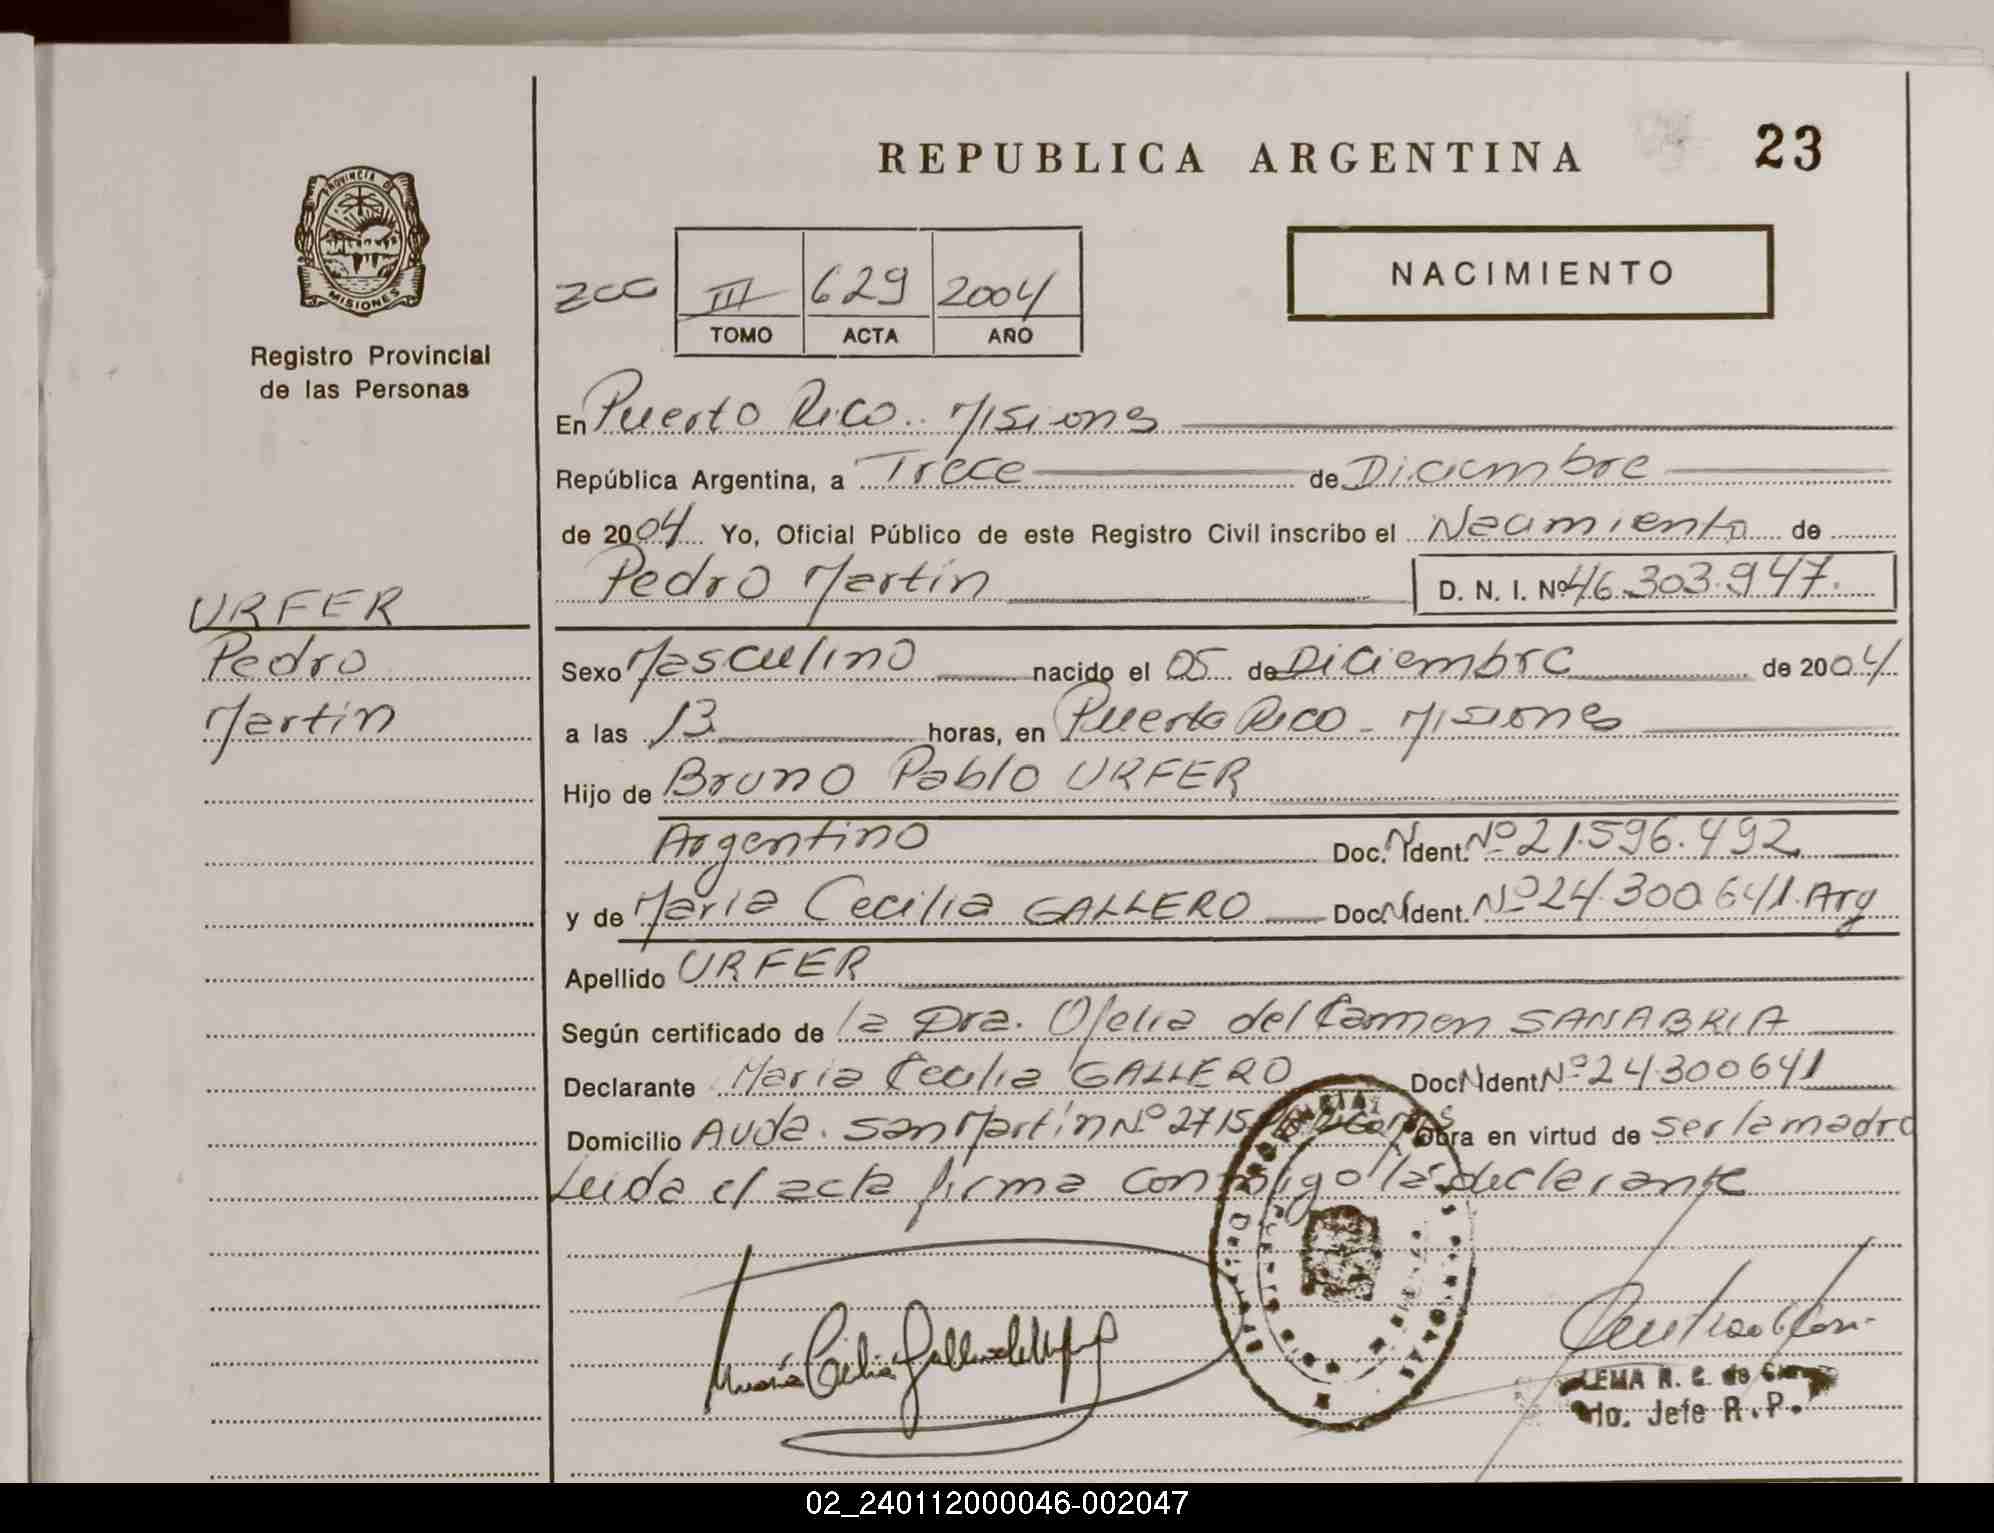 REPUBLICA ARGENTINA 23
PROVINCIA DE
MISIONES
Registro Provincial
de las Personas
NACIMIENTO
III 629 2004
TOMO ACTA AÑO
En Puerto Rico.. Misiones
República Argentina, a Trece de Diciembre
de 2004 Yo, Oficial Público de este Registro Civil inscribo el Nacimiento de
Pedro Martín D. N. I. Nº 46.303.947.
URFER
Pedro
Martín
Sexo Masculino nacido el 05 de Diciembre de 2004
a las 13 horas, en Puerto Rico - Misiones
Hijo de Bruno Pablo URFER
Argentino Doc. N Ident. Nº 21.596.492
y de María Cecilia GALLERO Doc. N Ident. Nº 24.300.641. Arg
Apellido URFER
Según certificado de la Dra. Ofelia del Carmen SANABRIA
Declarante María Cecilia GALLERO Doc N Ident Nº 24.300641
Domicilio Avda. San Martín Nº 2715 Obra en virtud de ser la madre
Leida el acta firma conmigo la declarante
LEMA R. C. de
Jefe R. P.
02_240112000046-002047